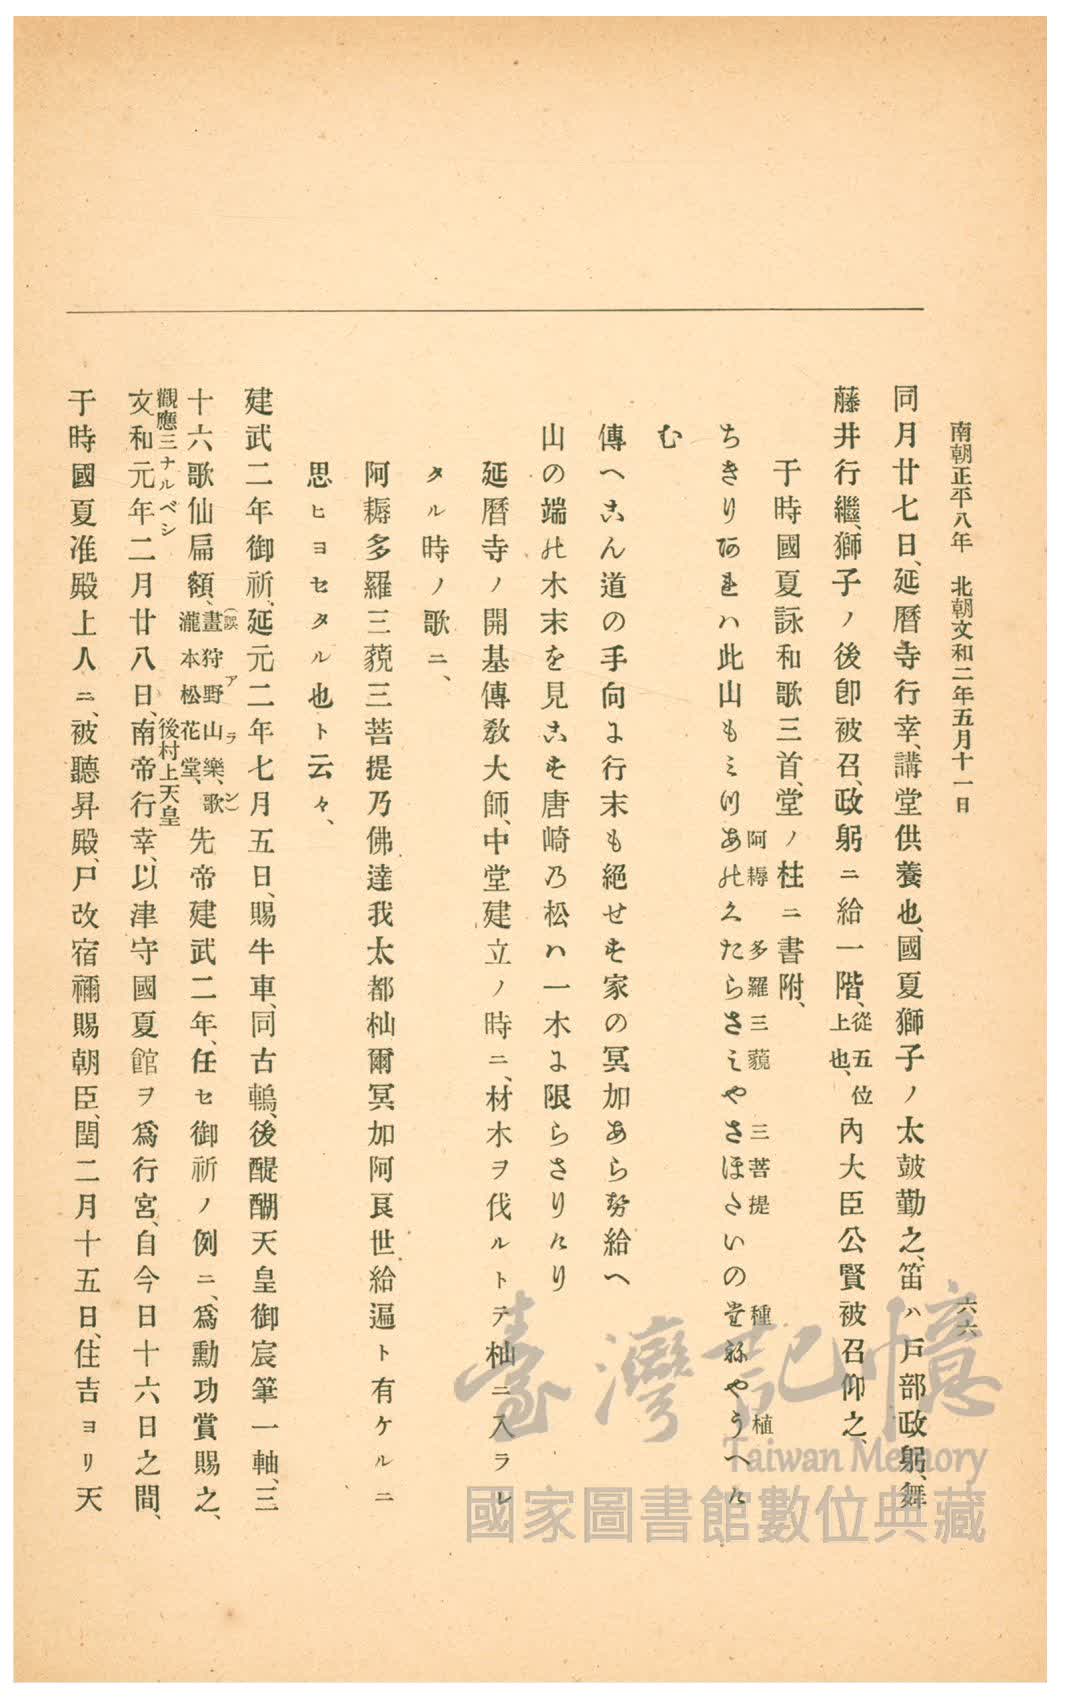 南朝正平八年　北朝文和二年五月十一日
六六
同月廿七日、延曆寺行幸、講堂供養也、國夏獅子ノ太皷勤之、笛ハ戶部政躬、舞
藤井行繼、獅子ノ後卽被召、政躬ニ給一階、從五位上也、內大臣公賢被召仰之、
于時國夏詠和歌三首、堂ノ柱ニ書附、
阿耨多羅三藐三菩提　種植
ちきりあれハ此山もみつあのくたらさみやさほたいのたねやうへけ
む
傳へこん道の手向に行末も絕せす家の冥加あらせ給へ
山の端の木末を見こす唐崎乃松ハ一木に限らさりけり
延曆寺ノ開基傳敎大師、中堂建立ノ時ニ、材木ヲ伐ルトテ杣ニ入ラレ
タル時ノ歌ニ、
阿耨多羅三藐三菩提乃佛達我太都杣爾冥加阿良世給遍ト有ケルニ
思ヒヨセタル也ト云々、
建武二年御祈、延元二年七月五日、賜牛車、同古鞆、後醍醐天皇御宸筆一軸、三
十六歌仙扁額、畫狩野山樂、歌瀧本松花堂、(誤アラン)先帝建武二年、任セ御祈ノ例ニ、爲勳功賞賜之、
觀應三ナルベシ　後村上天皇
文和元年二月廿八日、南帝行幸、以津守國夏館ヲ爲行宮、自今日十六日之間、
于時國夏准殿上人ニ、被聽昇殿、尸改宿禰賜朝臣、閏二月十五日、住吉ヨリ天
臺灣記憶
Taiwan Memory
國家圖書館數位典藏